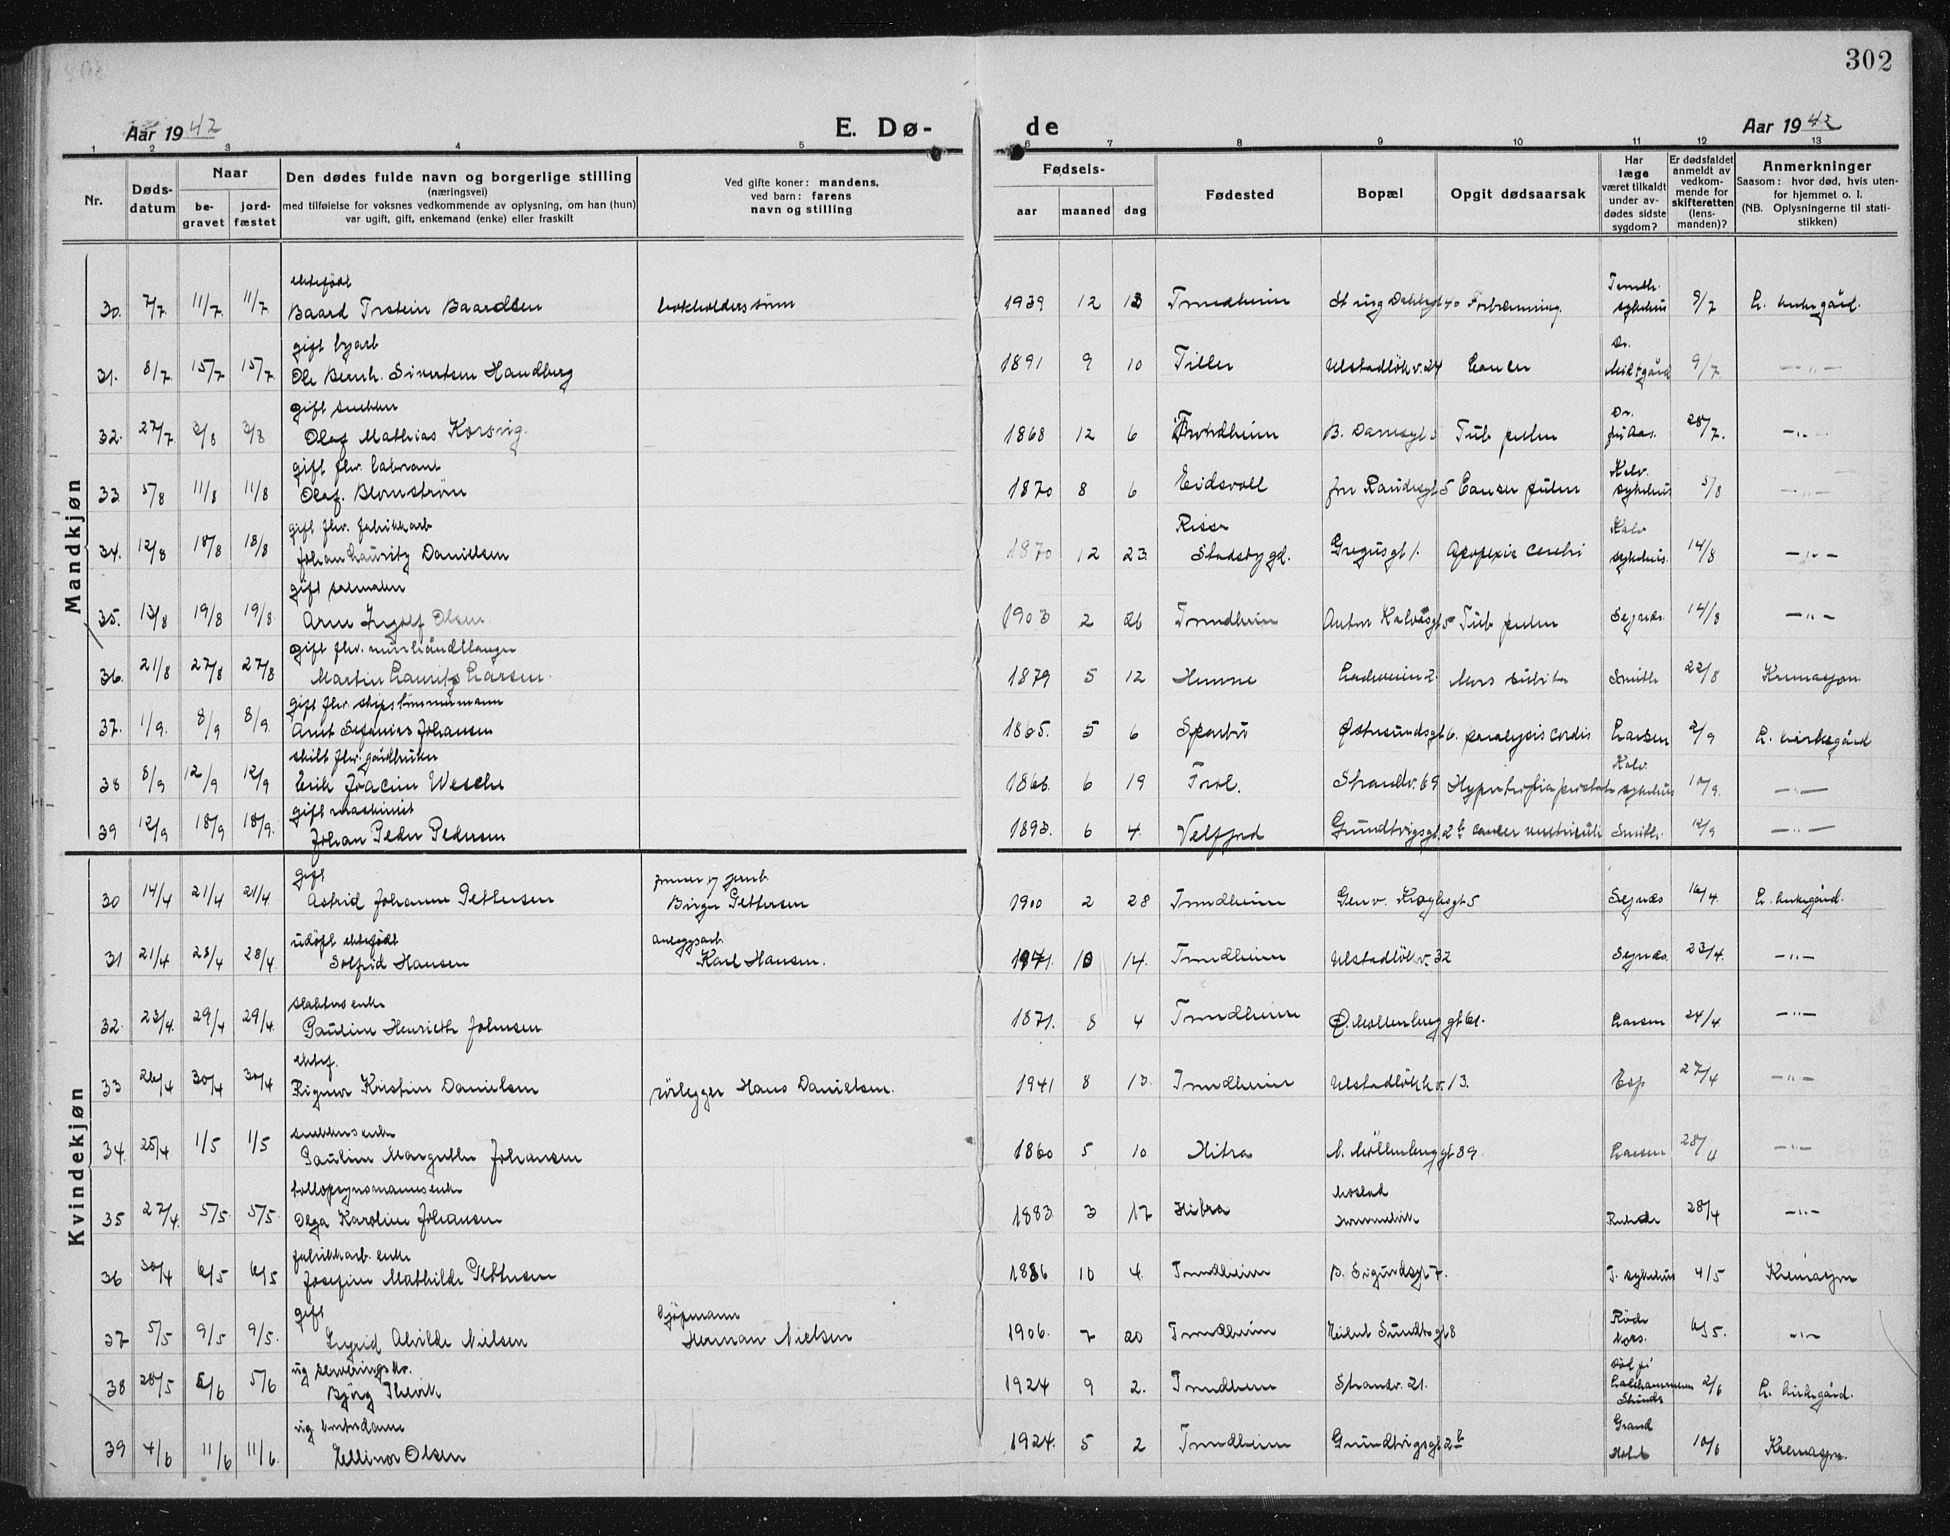 302
Aar 1942
E. Dø-
de
Aar 1942
1 2 3 4 5 6 7 8 9 10 11 12 13
Nr.
Døds-
datum
Naar
be-
gravet
jord-
fæstet
Den dødes fulde navn og borgerlige stilling
(næringsvei)
med tilføielse for voksnes vedkommende av oplysning, om han (hun)
var ugift, gift, enkemand (enke) eller fraskilt
Ved gifte koner: mandens,
ved barn: farens
navn og stilling
Fødsels-
aar maaned dag
Fødested
Bopæl
Opgit dødsaarsak
Har
læge
været tilkaldt
under av-
dødes sidste
sygdom?
Er dødsfaldet
anmeldt av
vedkom-
mende for
skifteretten
(lens-
manden)?
Anmerkninger
Saasom: hvor død, hvis uten-
for hjemmet o. l.
(NB. Oplysningerne til stati-
stikken)
Mandkjøn
ektefødt
30. 7/7 11/7 11/7 Baard Trstein Baardsen bokholders sønn 1939 12 13 Trondheim 40 Forbrenning Trondh. sykehus 9/7 L. kirkegård.
gift
31. 8/7 15/7 15/7 Ole Bernh. Sivertsen Handberg 1891 9 10 Tiller Ulstadløkv. 24 Cancer Dr. Midtgård 9/7 —"—
gift snekker
32. 27/7 3/8 3/8 Olaf Mathias Korsvig. 1868 12 6 Trondheim 5 Tub pulm Dr. 28/7. —"—
gift fhv. laborant
33 5/8 11/8 11/8 Olaf Blomstrøm 1870 8 6 Eidsvoll 5 Cancer pulm Kalv. sykehus 5/8 —"—
gift fhv. fabrikkarb
34. 12/8 18/8 18/8 Johan Lauritz Danielsen 1870 12 23. Rissa Stadsbygd. Gregusgt 1. Apopexie cerebri Kalv sykehus. 14/8 —"—
gift salmaker
35. 13/8 19/8 19/8 Arne Ingolf Olsen. 1903 2 26 Trondheim Anton Kalvåsgt 5 Tub pulm Segnæs. 14/8 —"—
gift fhv. murhåndtlanger
36. 21/8 27/8 27/8 Martin Lauritz Larsen. 1879 5 12 Hemne Ladeveien 2. Mors subita Smith 22/8 Kremasjon.
gift fhv. skipstømmermann
37. 1/9. 8/9 8/9. Arnt Johansen 1865. 5 6 Sparbu Østersundsgt 6. paralysis cordis Larsen 2/9 L. kirkegård
skilt fhv. gårdbruker
38 8/9 12/9 12/9 Erik Joacim Wesche 1866. 6 19 Tirol. Strandv. 69 Hypertrofia prostata Kalv. sykehus 10/9. —"—
gift maskinist
39 12/9 18/9 18/9. Johan Peder Pedersen 1893. 6 4. Velfjord Grundtvigsgt. 2b cancer ventriculi Smith. 12/9 —"—
Kvindekjøn
gift
30 14/4 21/4 21/4 Astrid Johanne Pettersen Birger Pettersen 1900 2 28 Trondheim Gen v. Kroghsgt 5 Segnæs 16/4. L. kirkegård.
udøpt ektefødt
31 21/4 28/4 28/4. Solfrid Hansen anleggsarb. Karl Hansen. 1941. 10 14. Trondheim Ulstadløkv. 32 Segnæs. 23/4. —"—
slakters enke
32. 23/4. 29/4 29/4. Pauline Henriette Johnsen 1871. 8 4 Trondheim Ø. Møllenberggt 61. Larsen 24/4 —"—
ektef.
33 26/4 30/4 30/4 Rigmor Kristine Danielsen rørlegger Hans Danielsen. 1941 8 13. Trondheim Ulstadløkkv. 13. Esp 27/4 —"—
snekkers enke
34. 25/4 1/5 1/5 Pauline Margrethe Johansen 1860 5 10 Hitra N. Møllenberggt 89. Larsen 28/4 —"—
tollopsynsmanns enke
35 27/4. 5/5. 5/5. Olga Karoline Johansen 1883 3 17 Hitra Mostad Hommelvik 28/4 —"—
fabrikkarb. enke
36 30/4 6/5 6/5 Josefine Mathilde Pettersen 1886 10 4. Trondheim B. Sigurdsgt 7. T. sykehus 4/5 Kremasjon
gift
37 5/5 9/5 9/5. Ingrid Alvilde Nielsen kjøpmann Herman Nielsen 1906. 7 20 Trondheim Eilert Sundtsgt 8 Røde Kors. 6/5. —"—
ug serveringsdr.
38 28/5 5/6 5/6 Bjørg Thevik 1924 9 2. Trondheim Strandv. 21. 2/6 L. kirkegård.
ug kontordame
39 4/6 11/6 11/6. Ellinor Olsen 1924. 5 2 Trondheim Grundtvigsgt 2b Grand Hotel 10/6 Kremasjon.